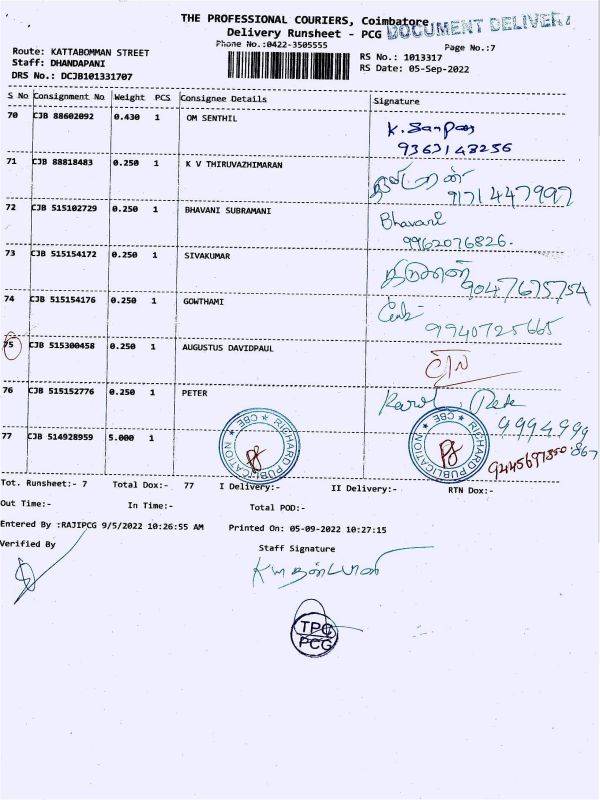 THE PROFESSIONAL COURIERS, Coimbatore.
DOCUMENT DELIVERY
Delivery Runsheet - PCG
Phone No.:0422-3505555
Page No.:7
Route: KATTABOMMAN STREET
RS No.: 1013317
Staff: DHANDAPANI
RS Date: 05-Sep-2022
DRS No.: DCJB101331707
S No Consignment No Weight PCS Consignee Details Signature
70 CJB 88602092 0.430 1 OM SENTHIL
9363143256
71 CJB 88818483 0.250 1 K V THIRUVAZHIMARAN
9171447997
72 CJB 515102729 0.250 1 BHAVANI SUBRAMANI Bhavani
9962076826.
73 CJB 515154172 0.250 1 SIVAKUMAR
9047675754
74 CJB 515154176 0.250 1 GOWTHAMI
9940725665
75 CJB 515300458 0.250 1 AUGUSTUS DAVIDPAUL
76 CJB 515152776 0.250 1 PETER
9994999
867
77 CJB 514928959 5.000 1
RICHARD PUBLICATION ★ CBE ★
RICHARD PUBLICATION ★ CBE ★
Tot. Runsheet:- 7 Total Dox:- 77 I Delivery:- II Delivery:- RTN Dox:-
Out Time:- In Time:- Total POD:-
Entered By :RAJIPCG 9/5/2022 10:26:55 AM Printed On: 05-09-2022 10:27:15
Verified By Staff Signature
TPC
PCG